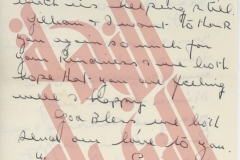 Julian & I want to thank
you again so much for
your kindness & we both
hope that you are feeling
well & happy.
God Bless, we both
send our love to you.